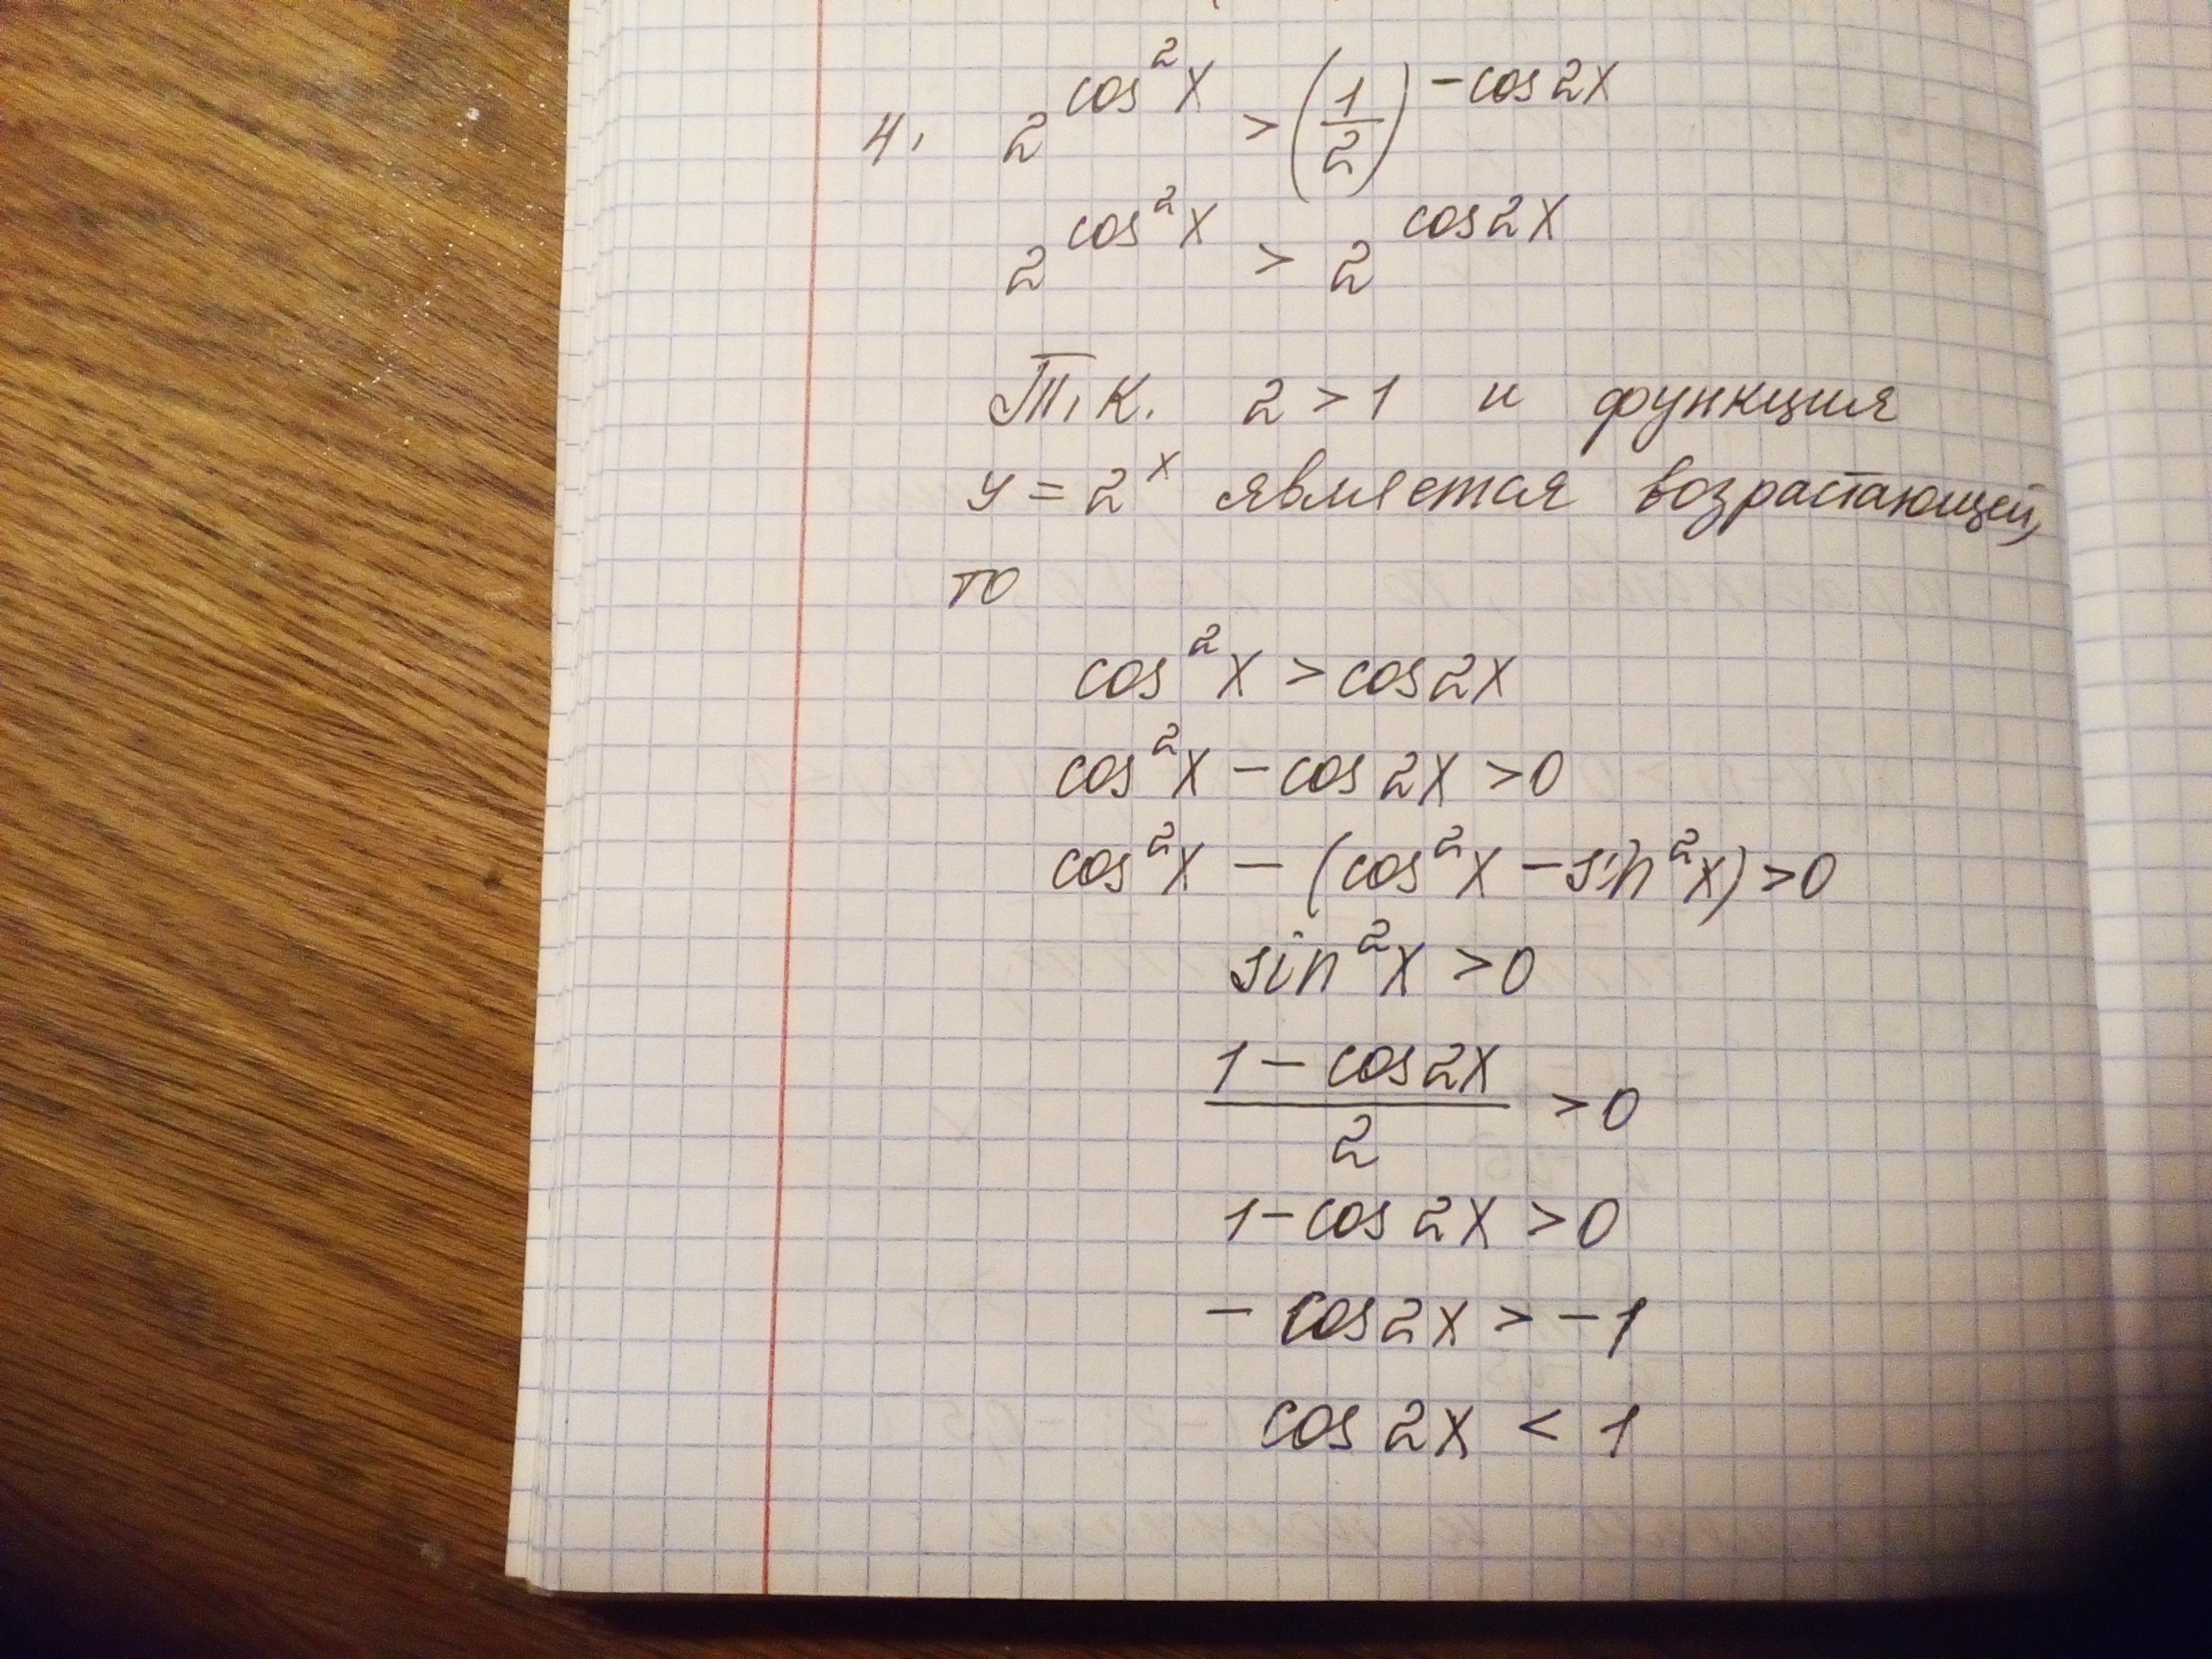 4. 2^{cos^2 x} > (1/2)^{-cos 2x}
2^{cos^2 x} > 2^{cos 2x}
Т.к. 2 > 1 и функция
y = 2^x является возрастающей,
то
cos^2 x > cos 2x
cos^2 x - cos 2x > 0
cos^2 x - (cos^2 x - sin^2 x) > 0
sin^2 x > 0
(1 - cos 2x)/2 > 0
1 - cos 2x > 0
- cos 2x > -1
cos 2x < 1